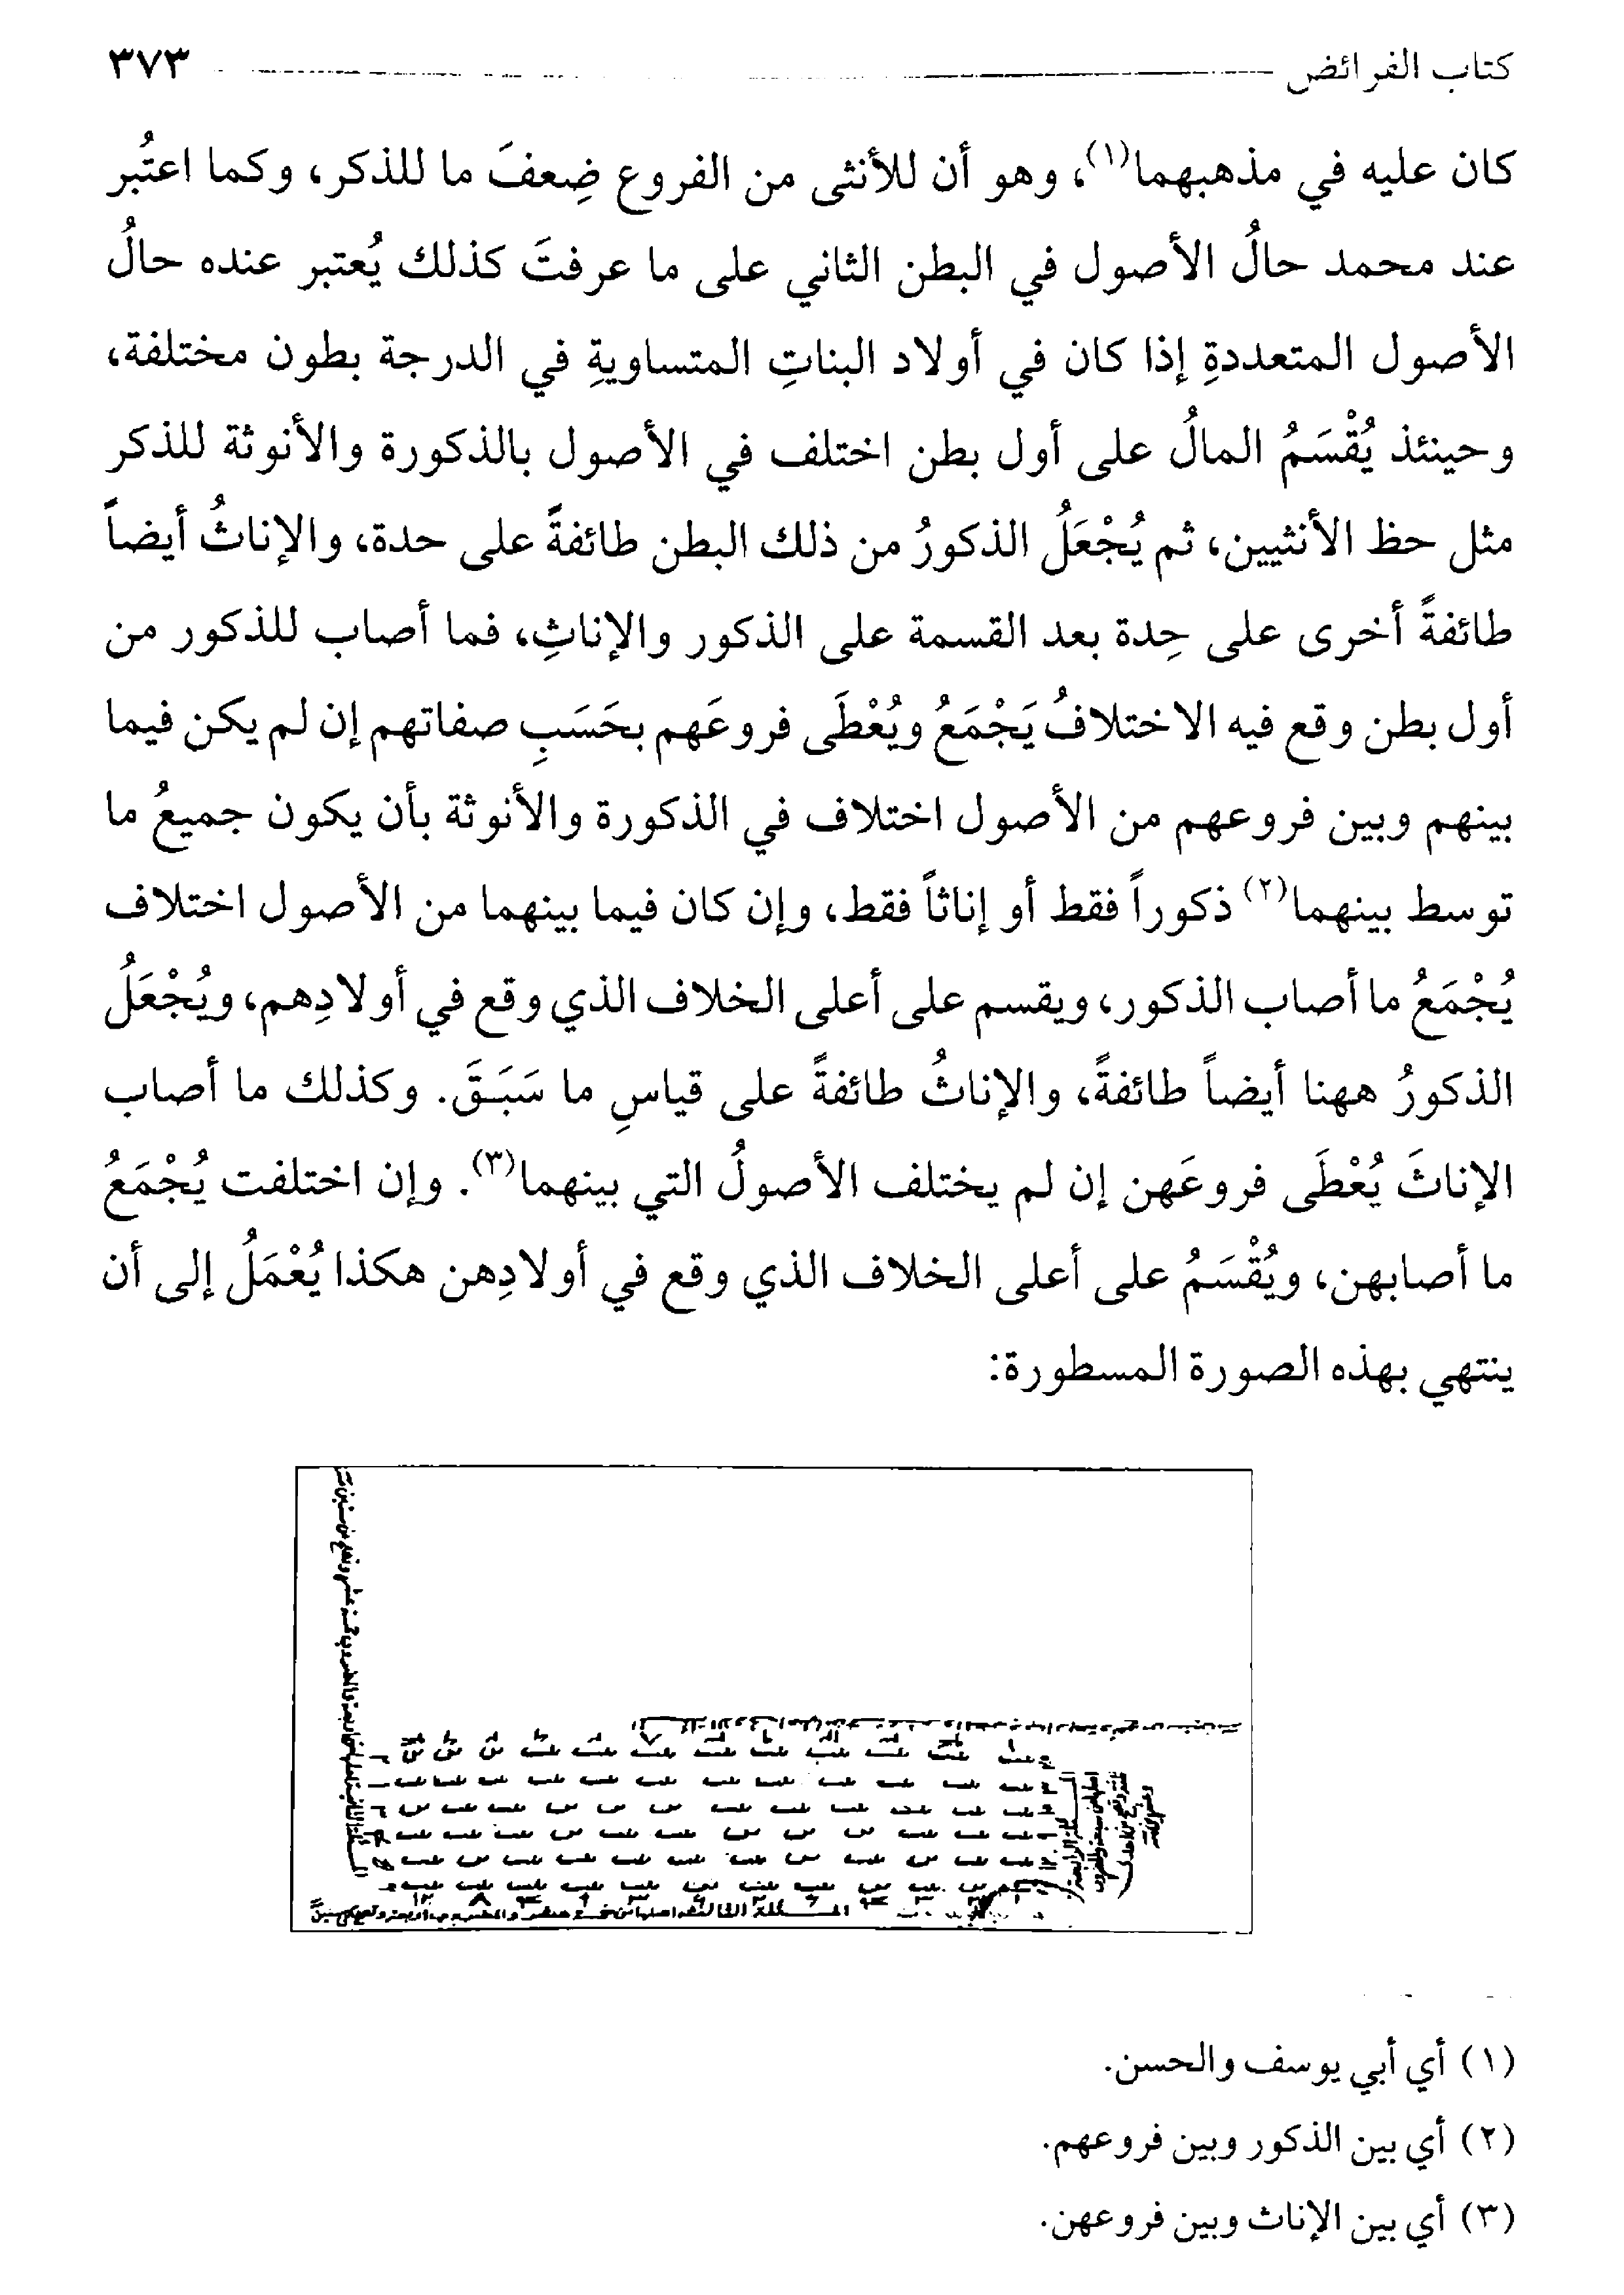 كتاب الفرائض ٣٧٣
كان عليه في مذهبهما(١)، وهو أن للأنثى من الفروع ضِعفَ ما للذكر، وكما اعتُبر
عند محمد حالُ الأصول في البطن الثاني على ما عرفتَ كذلك يُعتبر عنده حالُ
الأصول المتعددةِ إذا كان في أولاد البناتِ المتساويةِ في الدرجة بطون مختلفة،
وحينئذ يُقْسَمُ المالُ على أول بطن اختلف في الأصول بالذكورة والأنوثة للذكر
مثل حظ الأنثيين، ثم يُجْعَلُ الذكورُ من ذلك البطن طائفةً على حدة، والإناثُ أيضاً
طائفةً أخرى على حِدة بعد القسمة على الذكور والإناثِ، فما أصاب للذكور من
أول بطن وقع فيه الاختلافُ يَجْمَعُ ويُعْطَى فروعَهم بحَسَبِ صفاتهم إن لم يكن فيما
بينهم وبين فروعهم من الأصول اختلاف في الذكورة والأنوثة بأن يكون جميعُ ما
توسط بينهما(٢) ذكوراً فقط أو إناثاً فقط، وإن كان فيما بينهما من الأصول اختلاف
يُجْمَعُ ما أصاب الذكور، ويقسم على أعلى الخلاف الذي وقع في أولادِهم، ويُجْعَلُ
الذكورُ ههنا أيضاً طائفةً، والإناثُ طائفةً على قياسِ ما سَبَقَ. وكذلك ما أصاب
الإناثَ يُعْطَى فروعَهن إن لم يختلف الأصولُ التي بينهما(٣). وإن اختلفت يُجْمَعُ
ما أصابهن، ويُقْسَمُ على أعلى الخلاف الذي وقع في أولادِهن هكذا يُعْمَلُ إلى أن
ينتهي بهذه الصورة المسطورة:
(١) أي أبي يوسف والحسن.
(٢) أي بين الذكور وبين فروعهم.
(٣) أي بين الإناث وبين فروعهن.